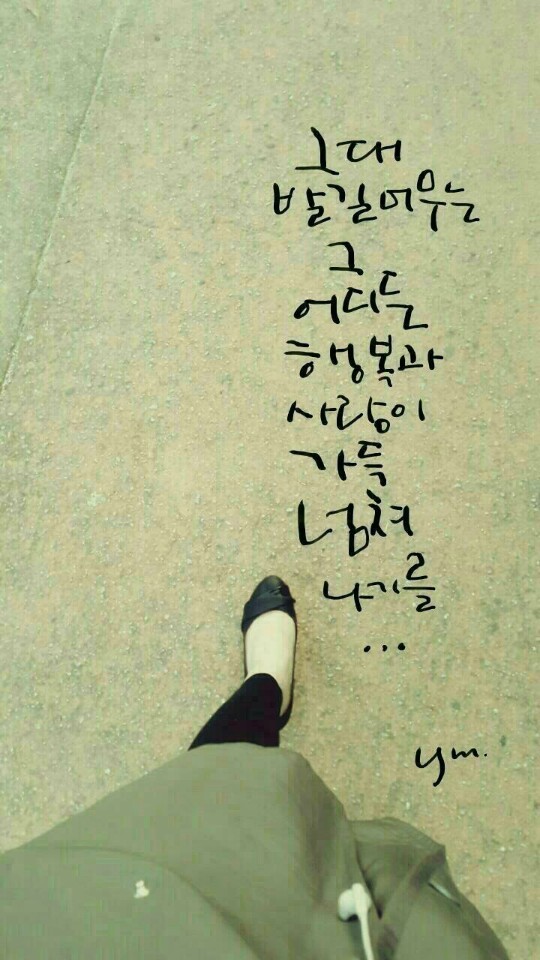 그대
발길머무는
그
어디든
행복과
사랑이
가득
넘쳐
나기를
...
ym.